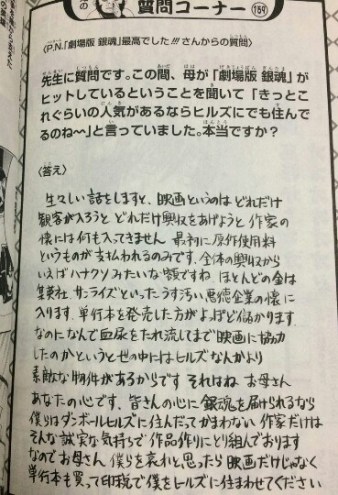 質問コーナー
184
〈P.N.「劇場版 銀魂」最高でした!!!さんからの質問〉
先生に質問です。この間、母が「劇場版 銀魂」が
ヒットしているということを聞いて「きっとこ
れぐらいの人気があるならヒルズにでも住んで
るのね〜」と言っていました。本当ですか?
〈答え〉
生々しい話をしますと、映画というのは どれだけ
観客が入ろうと どれだけ興収をあげようと 作家の
懐には何も入ってきません 最初に原作使用料
というものが支払われるのみです。全体の興収から
いえばハナクソみたいな額ですね ほとんどの金は
集英社 サンライズといったうす汚い悪徳企業の懐に
入ります。単行本を発売した方がよほど儲かります
なのになんで血尿をたれ流してまで映画に協力
したのかというと世の中にはヒルズなんかより
素敵な物件があるからです それはね お母さん
あなたの心です、皆さんの心に銀魂を届けられるなら
僕らはダンボールヒルズに住んだってかまわない 作家だけは
そんな誠実な気持ちで作品作りにとり組んでおります
なのでお母さん 僕らを哀れと思ったら映画だけじゃなく
単行本も買って印税で僕をヒルズに住まわせてください